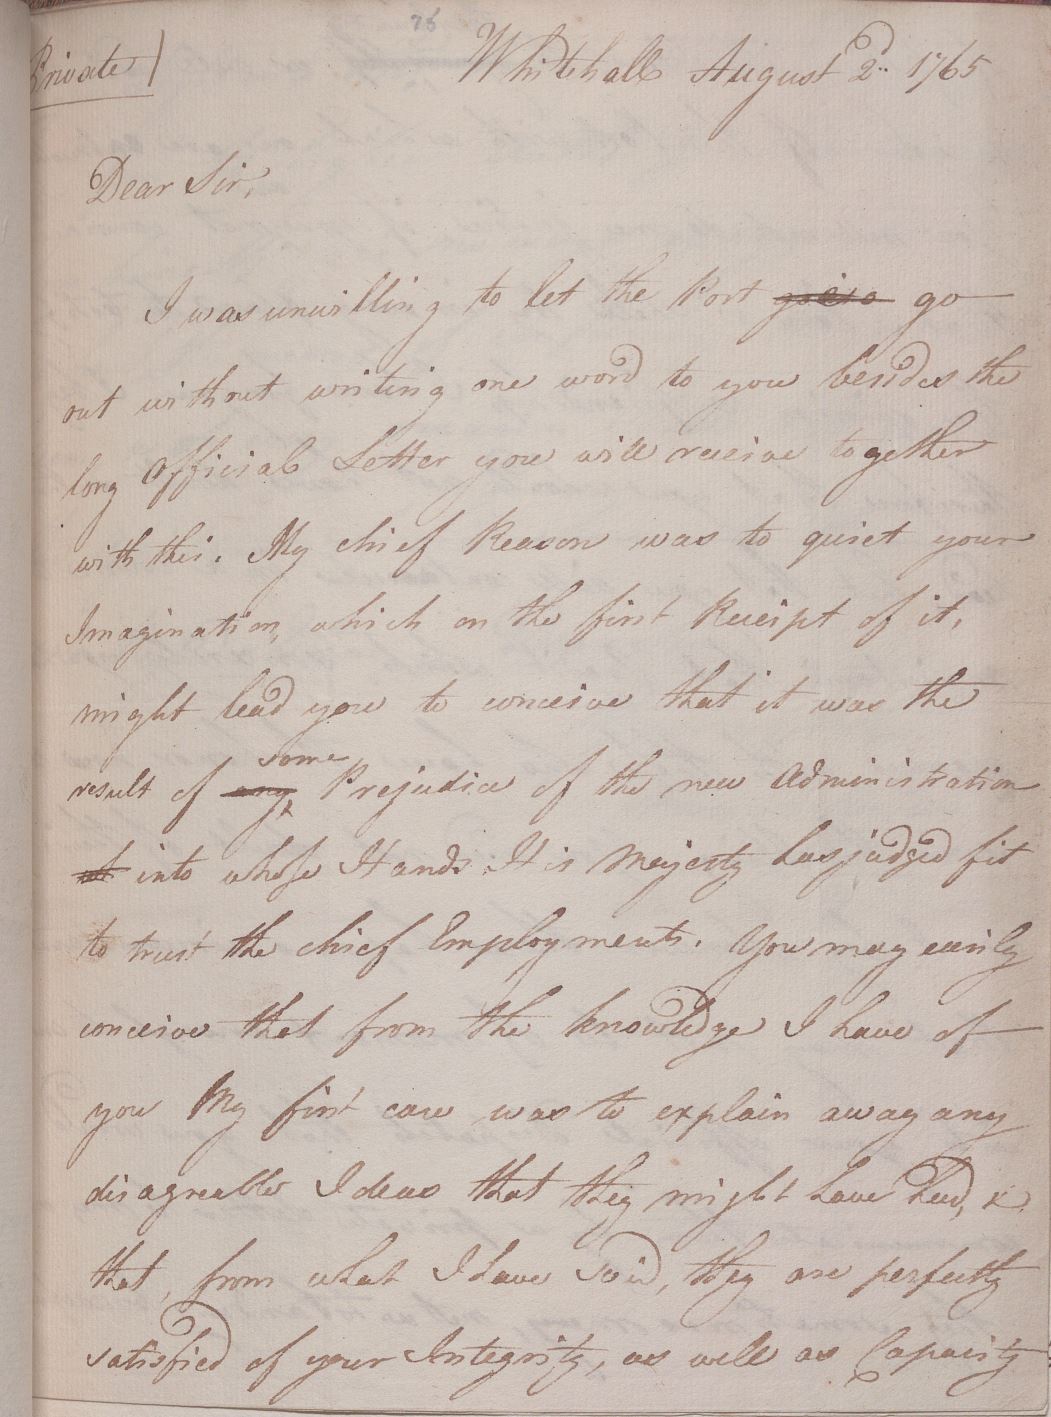 75
Private
Whitehall August 2d. 1765
Dear Sir,
I was unwilling to let the Post go
out without writing one word to you besides the
long Official Letter you will receive together
with this. My chief Reason was to quiet your
Imagination, which on the first Receipt of it,
might lead you to conceive that it was the
some
result of any Prejudice of the new Administration
into whose Hands His Majesty has judged fit
to trust the chief Employments. You may easily
conceive that from the knowledge I have of
you My first care was to explain away any
disagreable Ideas that they might have had, &
that, from what I have said, they are perfectly
satisfied of your Integrity, as well as Capacity